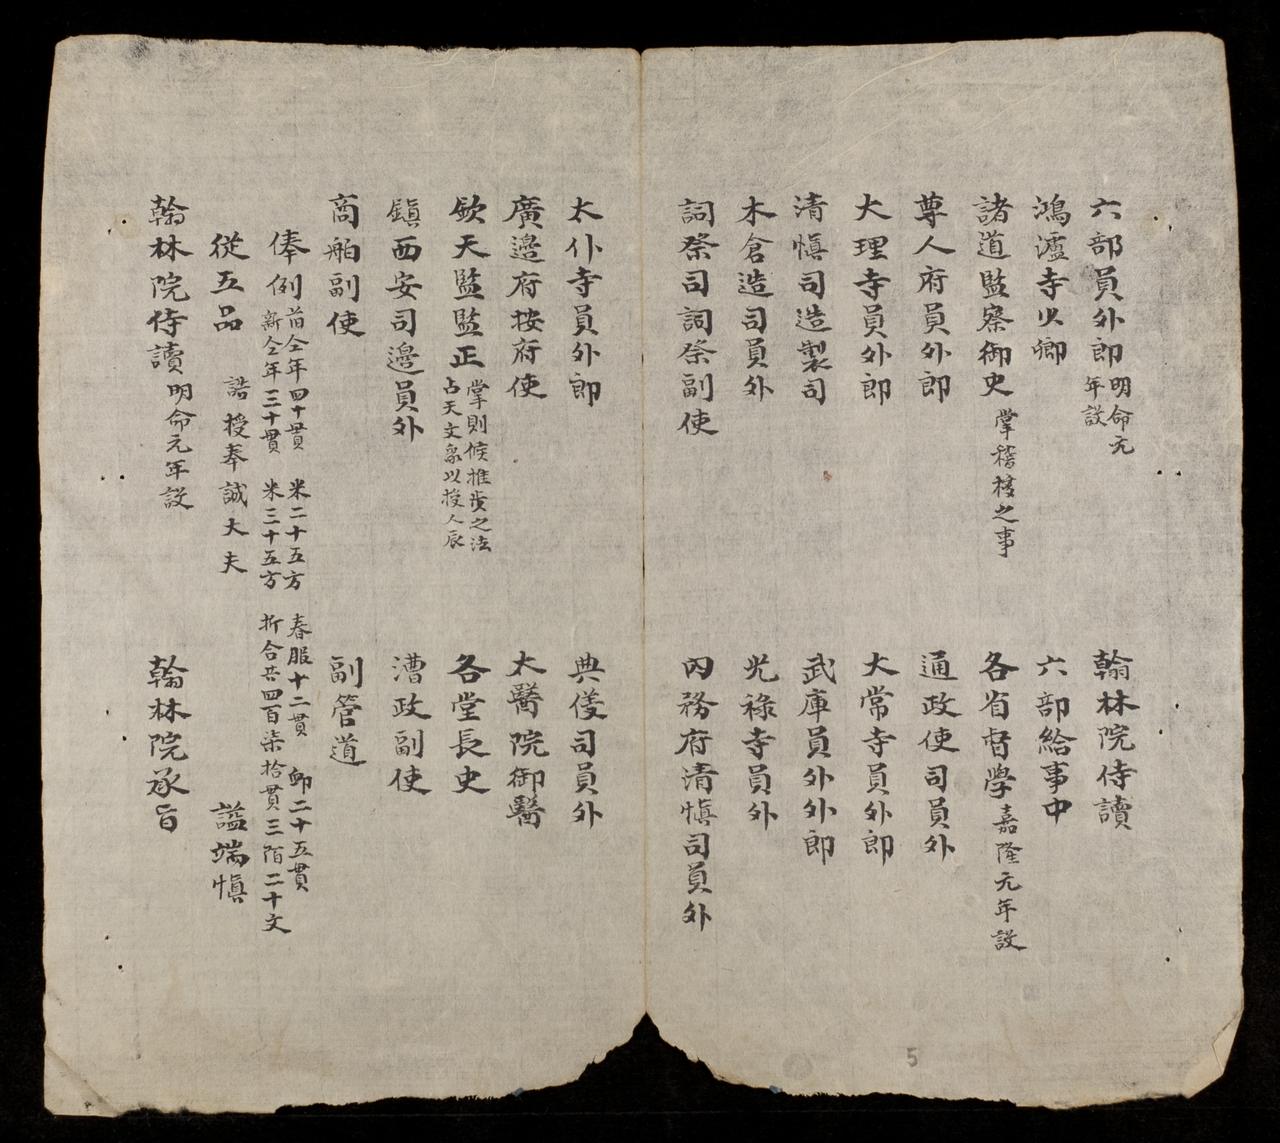 六部員外郎 明命元年設 翰林院侍讀
鴻瀘寺少卿 六部給事中
諸道監察御史 掌稽核之事 各省督學 嘉隆元年設
尊人府員外郎 通政使司員外
大理寺員外郎 大常寺員外郎
清慎司造製司 武庫員外外郎
木倉造司員外 光祿寺員外
詞祭司詞祭副使 內務府清慎司員外
太仆寺員外郎 典儀司員外
廣邊府按府使 大醫院御醫
欽天監監正 掌則候推步之法占天文象以授人辰 各堂長史
鎮西安司邊員外 漕政副使
商舶副使 副管道
俸例 首仝年四十貫 米二十五方 春服十二貫 卹二十五貫
新仝年三十貫 米三十五方 折合共四百柒拾貫三陌二十文
從五品 誥授奉誠大夫 謚端慎
翰林院侍讀 明命元年設 翰林院承旨
5